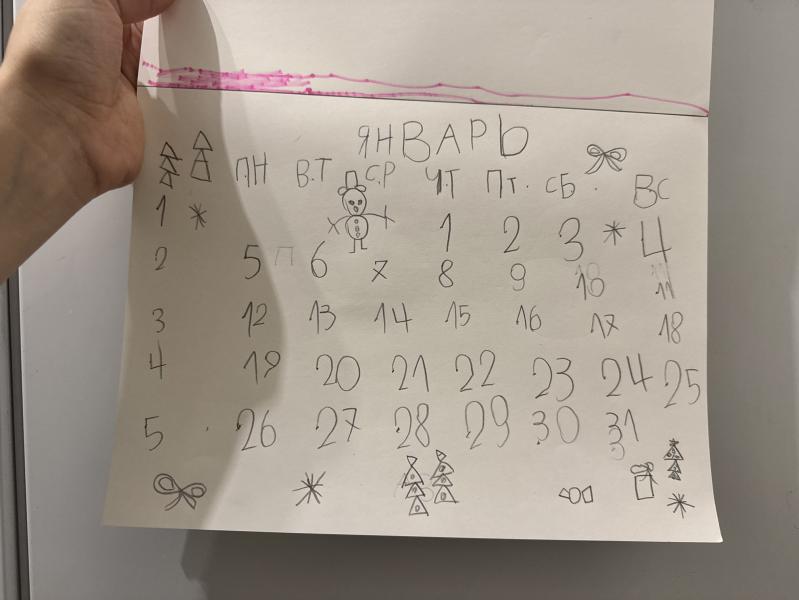 ЯНВАРЬ
П.Н В.Т С.Р Ч.Т П.Т. СБ. ВС
1 1 2 3 4
2 5 П 6 7 8 9 10 11
3 12 13 14 15 16 17 18
4 19 20 21 22 23 24 25
5 26 27 28 29 30 31